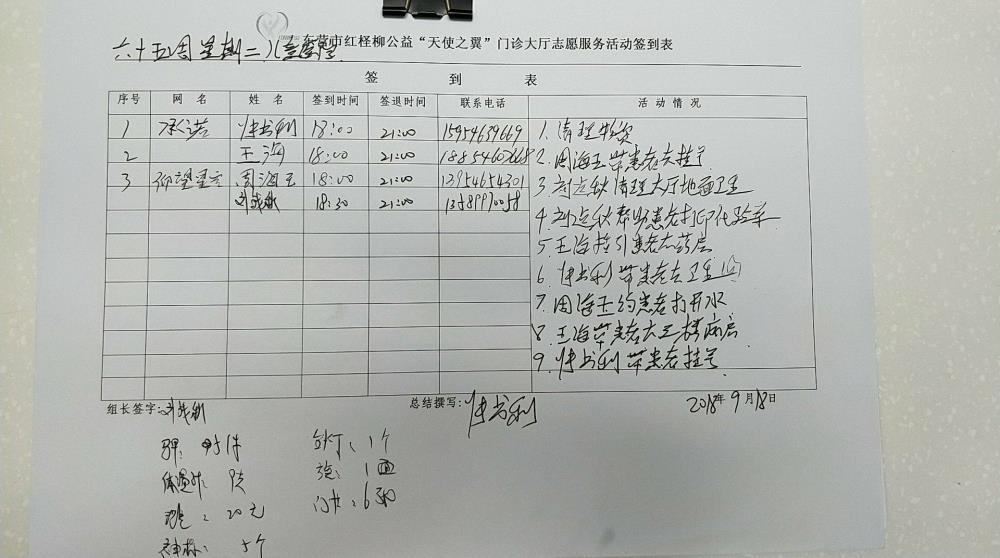 东营市红柽柳公益“天使之翼”门诊大厅志愿服务活动签到表
六十五周星期二儿童医院
签 到 表
序号 网 名 姓 名 签到时间 签退时间 联系电话 活 动 情 况
1 承诺 书利 18:00 21:00 15954639669
2 王海 18:00 21:00
3 仰望星空 周海玉 18:00 21:00 13954654301
18:30 21:00
1. 清理物资
2. 周海玉带患者去挂号
3. 清理大厅地面卫生
4. 帮助患者打印化验单
5. 王海指引患者去药房
6. 书利带患者去卫生间
7. 周海玉给患者打开水
8. 王海带患者去三楼病房
9. 书利带患者挂号
组长签字: 总结撰写: 书利 2018年9月18日
体温计: 
: 20元
: 5个
: 1个
: 1面